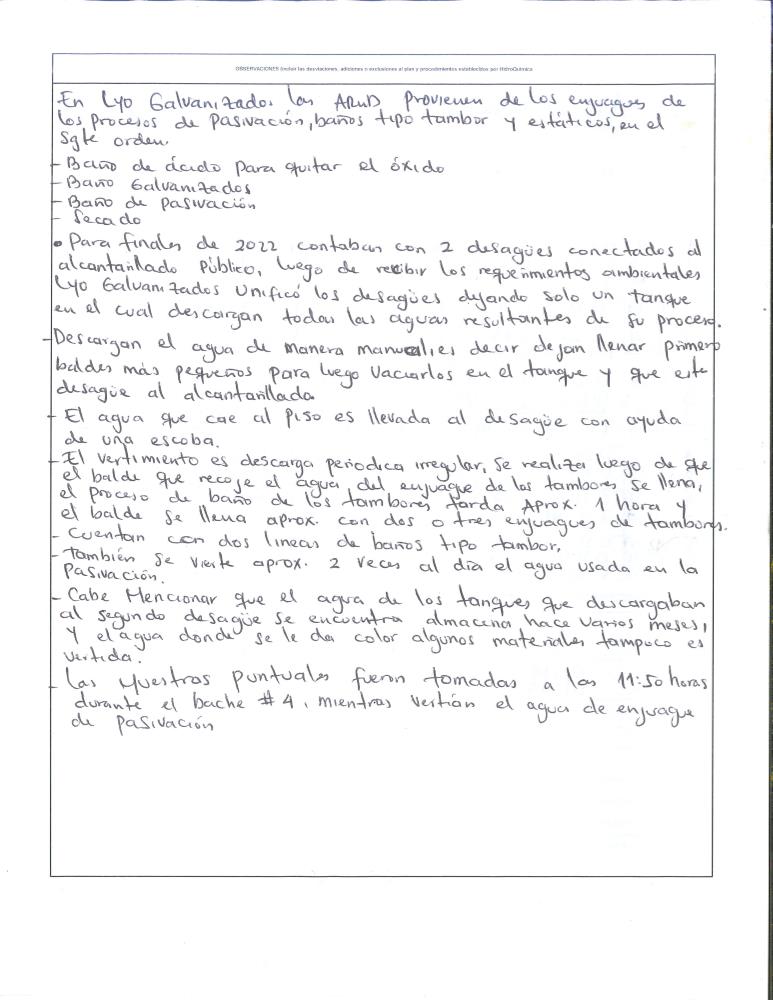 OBSERVACIONES (incluir las desviaciones, adiciones o exclusiones al plan y procedimientos establecidos por HidroQuimica
En Lyo Galvanizados las ARnD provienen de los enjuagues de
los procesos de Pasivación, baños tipo tambor y estáticos, en el
Sgte orden.
- Baño de ácido para quitar el óxido
- Baño Galvanizados
- Baño de Pasivación
- Secado
• Para finales de 2022 contaban con 2 desagües conectados al
alcantarillado Público, luego de recibir los requerimientos ambientales
Lyo Galvanizados Unificó los desagües dejando solo un tanque
en el cual descargan todas las aguas resultantes de su proceso.
- Descargan el agua de manera manual, es decir dejan llenar primero
baldes más pequeños para luego Vaciarlos en el tanque y que este
desagüe al alcantarillado
- El agua que cae al piso es llevada al desagüe con ayuda
de una escoba.
- El vertimiento es descarga periodica irregular, se realiza luego de que
el balde que recoje el agua del enjuague de los tambores se llena,
el proceso de baño de los tambores tarda Aprox. 1 hora y
el balde se llena aprox. con dos o tres enjuagues de tambores.
- Cuentan con dos lineas de baños tipo tambor.
- También se vierte aprox. 2 veces al día el agua usada en la
Pasivación.
- Cabe Mencionar que el agua de los tanques que descargaban
al segundo desagüe se encuentra almacena hace varios meses,
y el agua donde se le da color algunos materiales tampoco es
vertida.
- Las Muestras puntuales fueron tomadas a las 11:50 horas
durante el bache # 4, mientras vertían el agua de enjuague
de Pasivación